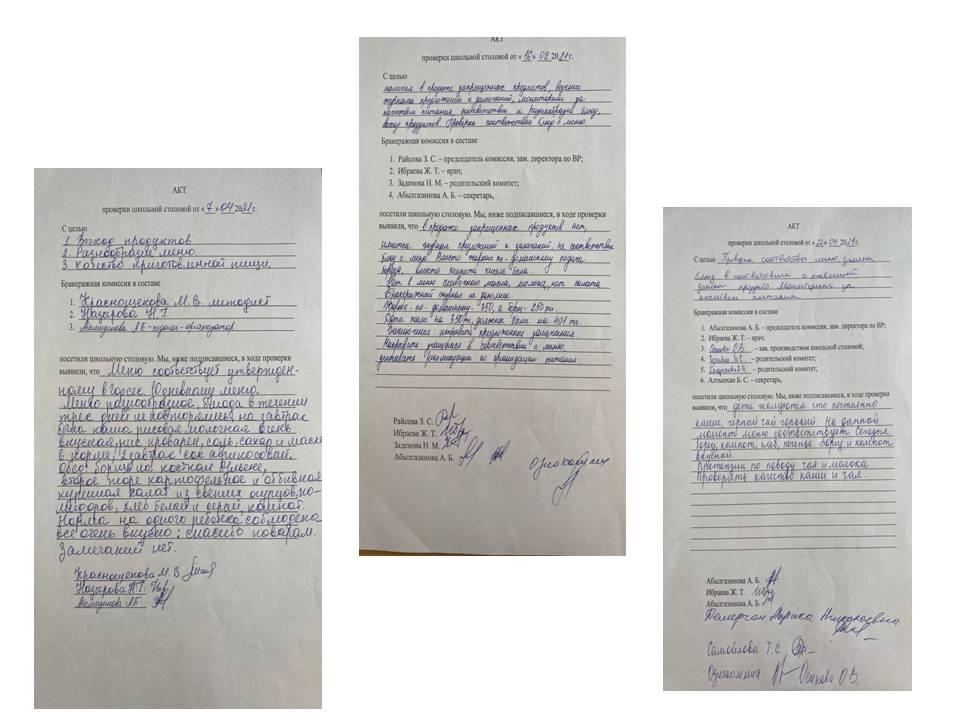 АКТ
проверки школьной столовой от « 7 » 04 2021 г.
С целью
1. Выход продуктов
2. Разнообразие меню
3. Качество приготовленной пищи.
Бракеражная комиссия в составе
1. Краснощекова М. В. методист
2. Назарова Н. Г.
3.
посетили школьную столовую. Мы, ниже подписавшиеся, в ходе проверки
выявили, что Меню соответствует утвержден-
ному
Меню разнообразное, блюда в течении
трех дней не повторяемы на завтрак
была каша рисовая молочная очень
вкусная, рис проварен, соль, сахар и масло
в норме, 2 завтрак сок абрикосовый.
Обед: борщ на костном бульоне,
второе пюре картофельное и отбивная
куриная салат из свежих огурцов, по-
мидоров, хлеб белый и серый, компот.
Норма на одного ребенка соблюдена
все очень вкусно: спасибо поварам.
Замечаний нет.
Краснощекова М. В
Назарова Н.Г.
АКТ
проверки школьной столовой от « 16 » 02 2021 г.
С целью
наличия в продаже запрещенных предметов, ведение
журнала предложений и замечаний, мониторинг за
качеством питания, соответствие и разнообразия блюд,
выход продуктов. Проверка соответствия блюд с меню
Бракеражная комиссия в составе
1. Райсова З. С. – председатель комиссия, зам. директора по ВР;
2. Ибраева Ж. Т. – врач;
3. Заденова Н. М. – родительский комитет;
4. Абылгазинова А. Б. – секретарь,
посетили школьную столовую. Мы, ниже подписавшиеся, в ходе проверки
выявили, что в продаже запрещенных продуктов нет,
имеется журнал предложений и замечаний, не соответствие
блюд с меню. Вместо жаркое по-домашнему подача
вместо компота кисель была.
Нет в меню сливочного масла, молока, нет салата
Бракеражный журнал не заполнен.
Жаркое-по-домашнему - 350, а борщ - 250 тг.
должна быть на 401 тг.
Заключение: исправить предложенные замечания
Накрывать учащихся в соответствии с меню
учитывать рекомендации по организации питания
Райсова З. С.
Ибраева Ж. Т.
Заденова Н. М.
Абылгазинова А. Б.
АКТ
проверки школьной столовой от « 22 » 09 2021 г.
С целью Проверка соответствия меню, замена
блюд в соответствии с таблицей
замен продукта. Мониторинг за
качеством питания.
Бракеражная комиссия в составе
1. Абылгазинова А. Б. – председатель комиссия, зам. директора по ВР;
2. Ибраева Ж. Т. – врач;
3. О.В. – зав. производством школьной столовой;
4. – родительский комитет;
5. – родительский комитет;
6. Алтынхан Б. С. – секретарь,
посетили школьную столовую. Мы, ниже подписавшиеся, в ходе проверки
выявили, что дети жалуются что постоянно
каши, черный чай горький. На данный
момент меню соответствует. Сегодня
борщ, компот, хлеб, печенье. Борщ и компот
вкусный
Претензии по поводу чая и молока.
Проверять качество каши и чая.
Абылгазинова А. Б.
Ибраева Ж. Т.
Абылгазинова А. Б.
Самойлова Т.С.
Ознакомлена Осипова О.В.